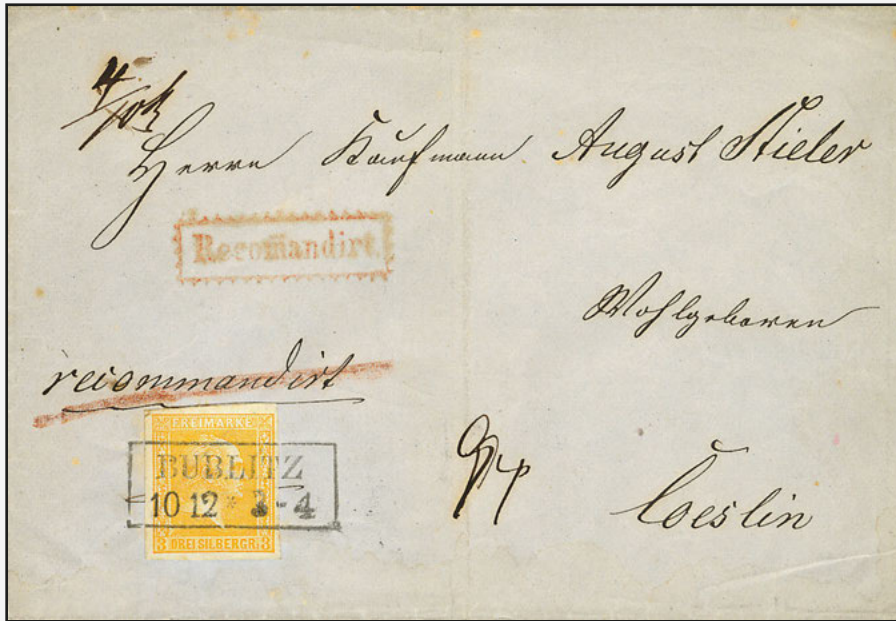 4/10
Herrn Kaufmann August Stieler
Recomandirt.
Wohlgeboren
recommandirt
FREIMARKE
BUBLITZ
10 12 * 3-4
3 DREI SILBERGR. 3
Coeslin